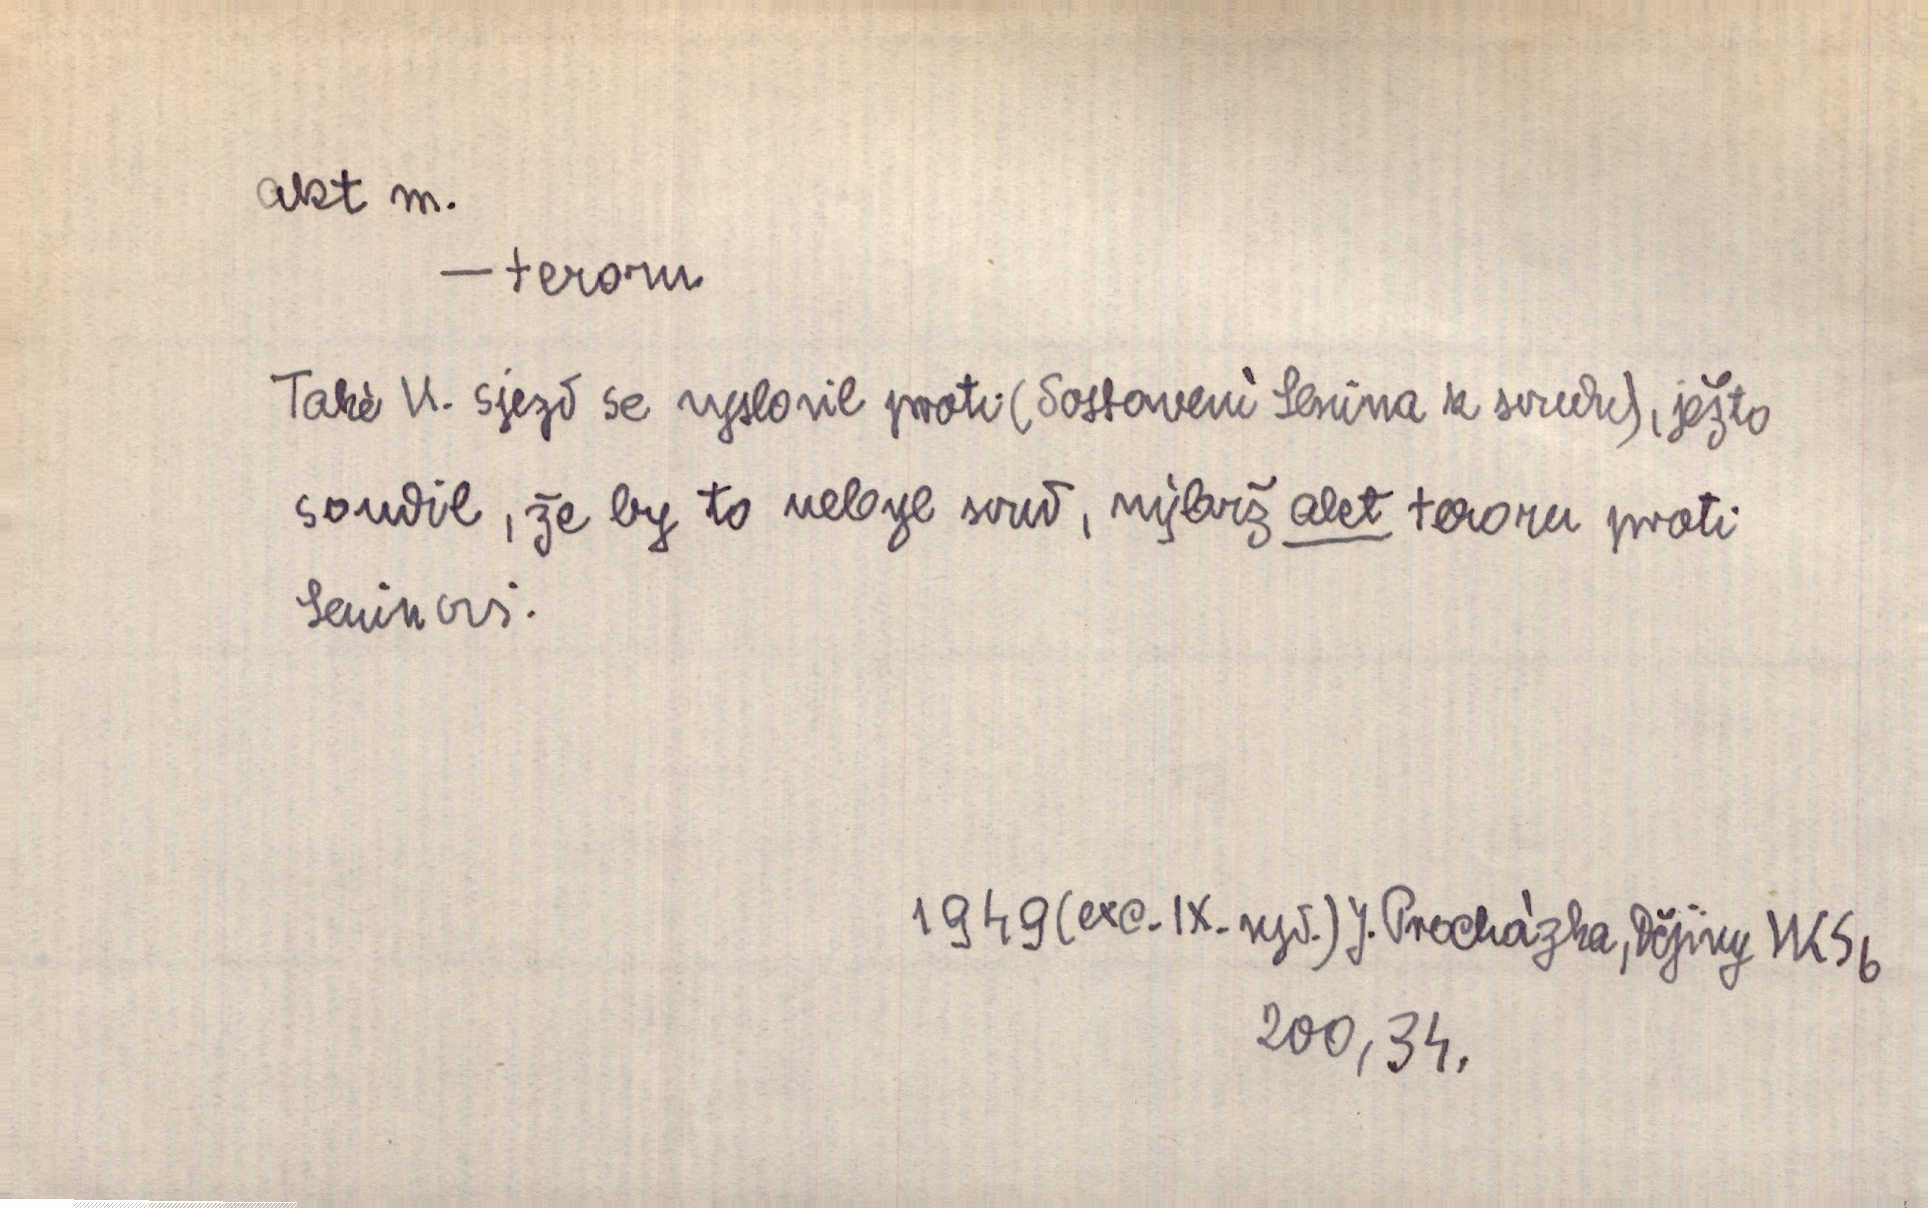 akt m.
— teroru
Také VI. sjezd se vyslovil proti (dostavení Lenina k soudu), ježto
soudil, že by to nebyl soud, nýbrž akt teroru proti
Leninovi.
1949 (exc. IX. vyd.) J. Procházka, Dějiny VKSb
200, 34.